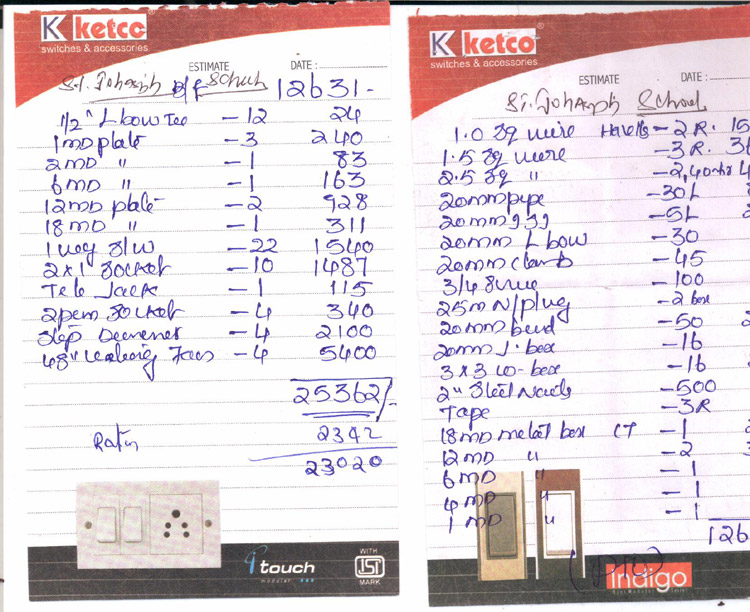 K ketco
switches & accessories
ESTIMATE DATE :
b/f 12631-
1/2" L bow Tee - 12 24
1 MD plate - 3 240
2 MD " - 1 83
6 MD " - 1 163
12 MD plate - 2 928
18 MD " - 1 311
1 way S/W - 22 1540
2 x 1 Socket - 10 1487
Tele Jack - 1 115
2 pem Socket - 4 340
Step - 4 2100
48" Fans - 4 5400
25362/-
2342
23020
touch
modular
WITH
ISI
MARK
K ketco
switches & accessories
ESTIMATE DATE :
School
1.0 Sq wire - 2 R. 15
1.5 Sq wire - 3R. 36
2.5 Sq " - 2,40
20mm pipe - 30L
20mm - 5L
20mm L bow - 30
20mm clamb - 45
3/4 Scrue - 100
25m N/plug - 2 box
20mm bend - 50
20mm J. box - 16
3 x 3 w-box - 16
2" Steel Nails - 500
Tape - 3R
18 MD metal box CT - 1
12 MD " - 2
6 MD " - 1
4 MD " - 1
1 MD " - 1
126
(PTO)
Indigo